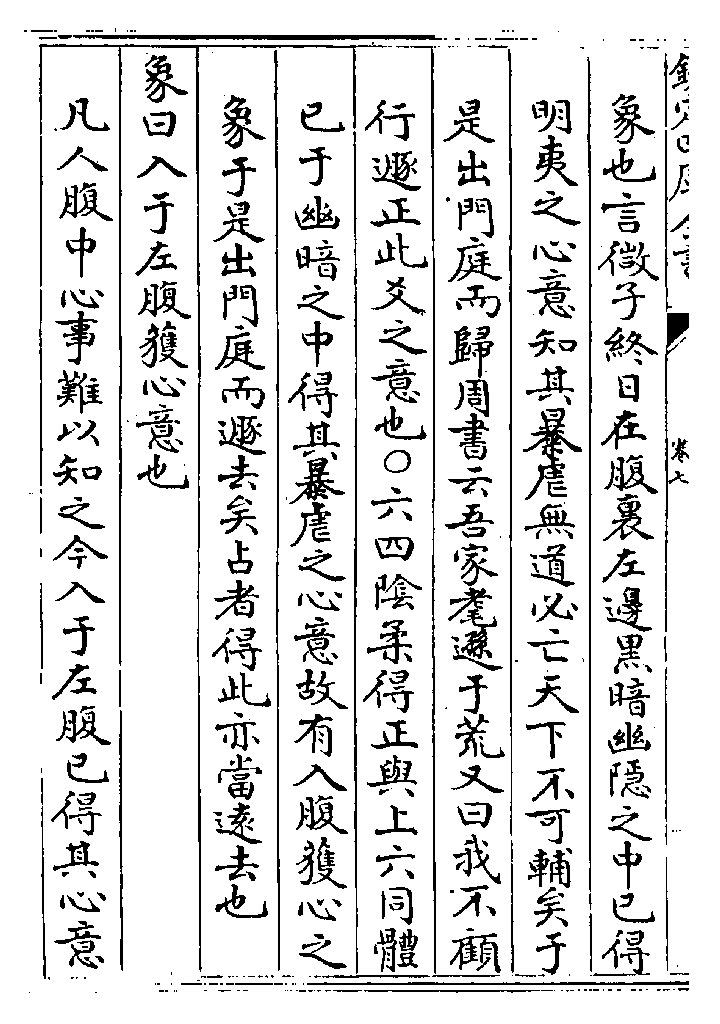 欽定四庫全書
卷七
象也言微子終日在腹裏左邊黑暗幽隱之中已得
明夷之心意知其暴虐無道必亡天下不可輔矣于
是出門庭而歸周書云吾家耄遜于荒又曰我不顧
行遯正此爻之意也○六四陰柔得正與上六同體
已于幽暗之中得其暴虐之心意故有入腹獲心之
象于是出門庭而遯去矣占者得此亦當遠去也
象曰入于左腹獲心意也
凡人腹中心事難以知之今入于左腹已得其心意